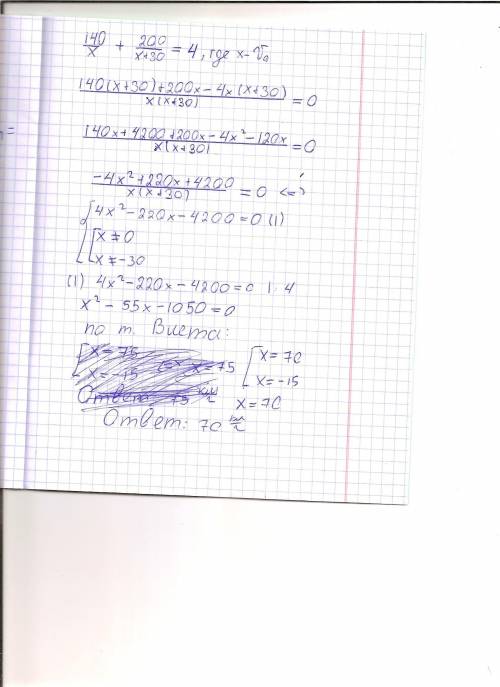 140/x + 200/(x+30) = 4, где x - V₀
(140(x+30)+200x-4x(x+30))/(x(x+30)) = 0
(140x+4200+200x-4x²-120x)/(x(x+30)) = 0
(-4x²+220x+4200)/(x(x+30)) = 0 <=>
4x²-220x-4200=0 (1)
x≠0
x≠-30
(1) 4x²-220x-4200=0 | : 4
x²-55x-1050=0
по т. Виета:
x=75 <=> x=75 x=70
x=-15 x=-15
Ответ: 75 км/ч x=70
Ответ: 70 км/ч